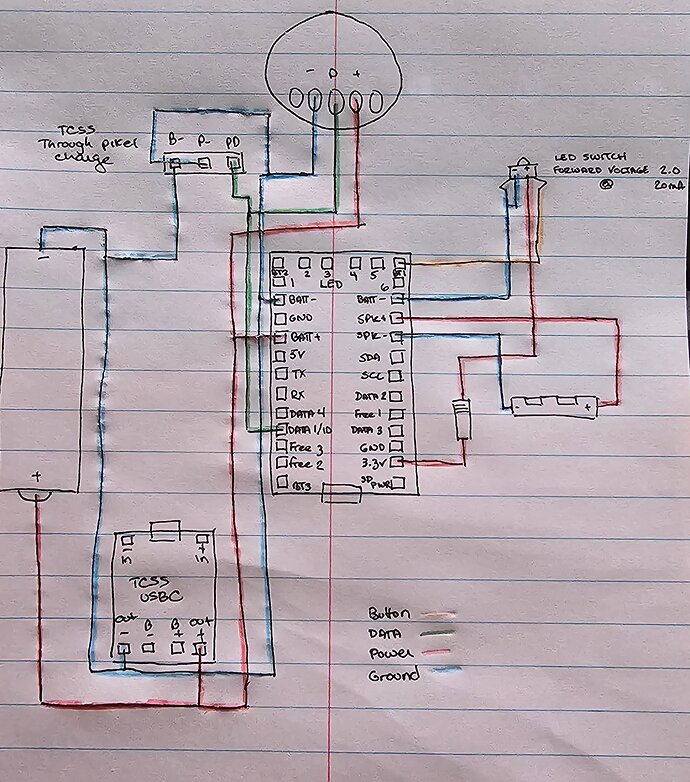 - O +
TCSS
Through pixel
charge
B- P- PD
LED SWITCH
FORWARD VOLTAGE 2.0
@ 20mA
- +
-
BT2 2 3 4 5 BT1
1 LED 6
BATT- BATT-
GND SPK+
BATT+ SPK-
5V SDA
TX SCL
RX DATA 2
DATA 4 Free 1
DATA 1/IO DATA 3
Free 3 GND
Free 2 3.3V
BT3 SD PWR
- +
+
- +
in in
TCSS
USBC
out B B out
- - + +
Button
DATA
Power
Ground